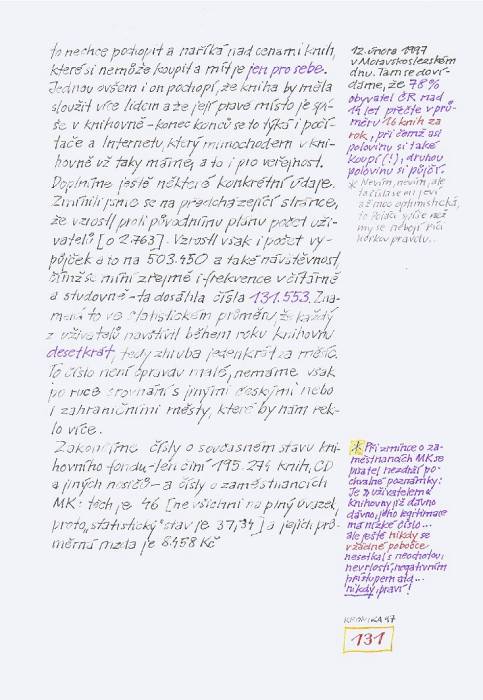 to nechce pochopit a naříká nad cenami knih,
které si nemůže koupit a mít je jen pro sebe.
Jednou ovšem i on pochopí, že kniha by měla
sloužit více lidem a že její pravé místo je spí-
še v knihovně - konec konců se to týká i počí-
tače a Internetu, který mimochodem v kni-
hovně už taky máme, a to i pro veřejnost.
Doplníme ještě některé konkrétní údaje.
Zmínili jsme se na předcházející stránce,
že vzrostl proti původnímu plánu počet uži-
vatelů [o 2.763]. Vzrostl však i počet vý-
půjček a to na 503.450 a také návštěvnost,
čímž se míní zřejmě i frekvence v čítárně
a studovně - ta dosáhla čísla 131.553. Zna-
mená to ve statistickém průměru, že každý
z uživatelů navštívil během roku knihovnu
desetkrát, tedy zhruba jedenkrát za měsíc.
To číslo není opravdu malé, nemáme však
po ruce srovnání s jinými českými nebo
i zahraničními městy, které by nám řek-
lo více.
Zakončíme čísly o současném stavu kni-
hovního fondu - ten činí 195.274 knih, CD
a jiných nosičů - a čísly o zaměstnancích
MK: těch je 46 [ne všichni na plný úvazek,
proto „statistický" stav je 37,34] a jejich prů-
měrná mzda je 8.458 Kč
12. února 1997
v Moravskoslezském
dnu. Tam se doví-
dáme, že 78%
obyvatel ČR nad
let přečte v prů-
měru 16 knih za
rok, při čemž asi
polovinu si také
koupí (!), druhou
polovinu si půjčí.
* Nevím, nevím, ale
ta čísla se mi jeví
až moc optimistická,
to
my se nebojí říci
hořkou pravdu..
* Při zmínce o za-
městnancích MK se
pisatel nezdrží po-
chvalné poznámky:
Je uživatelem
knihovny již dávno
dávno, jeho legitimace
má nízké číslo...
ale ještě nikdy se
v žádné pobočce
nesetkal s neochotou,
nevrlostí, negativním
přístupem atd...
nikdy, praví!
KRONIKA 97
131